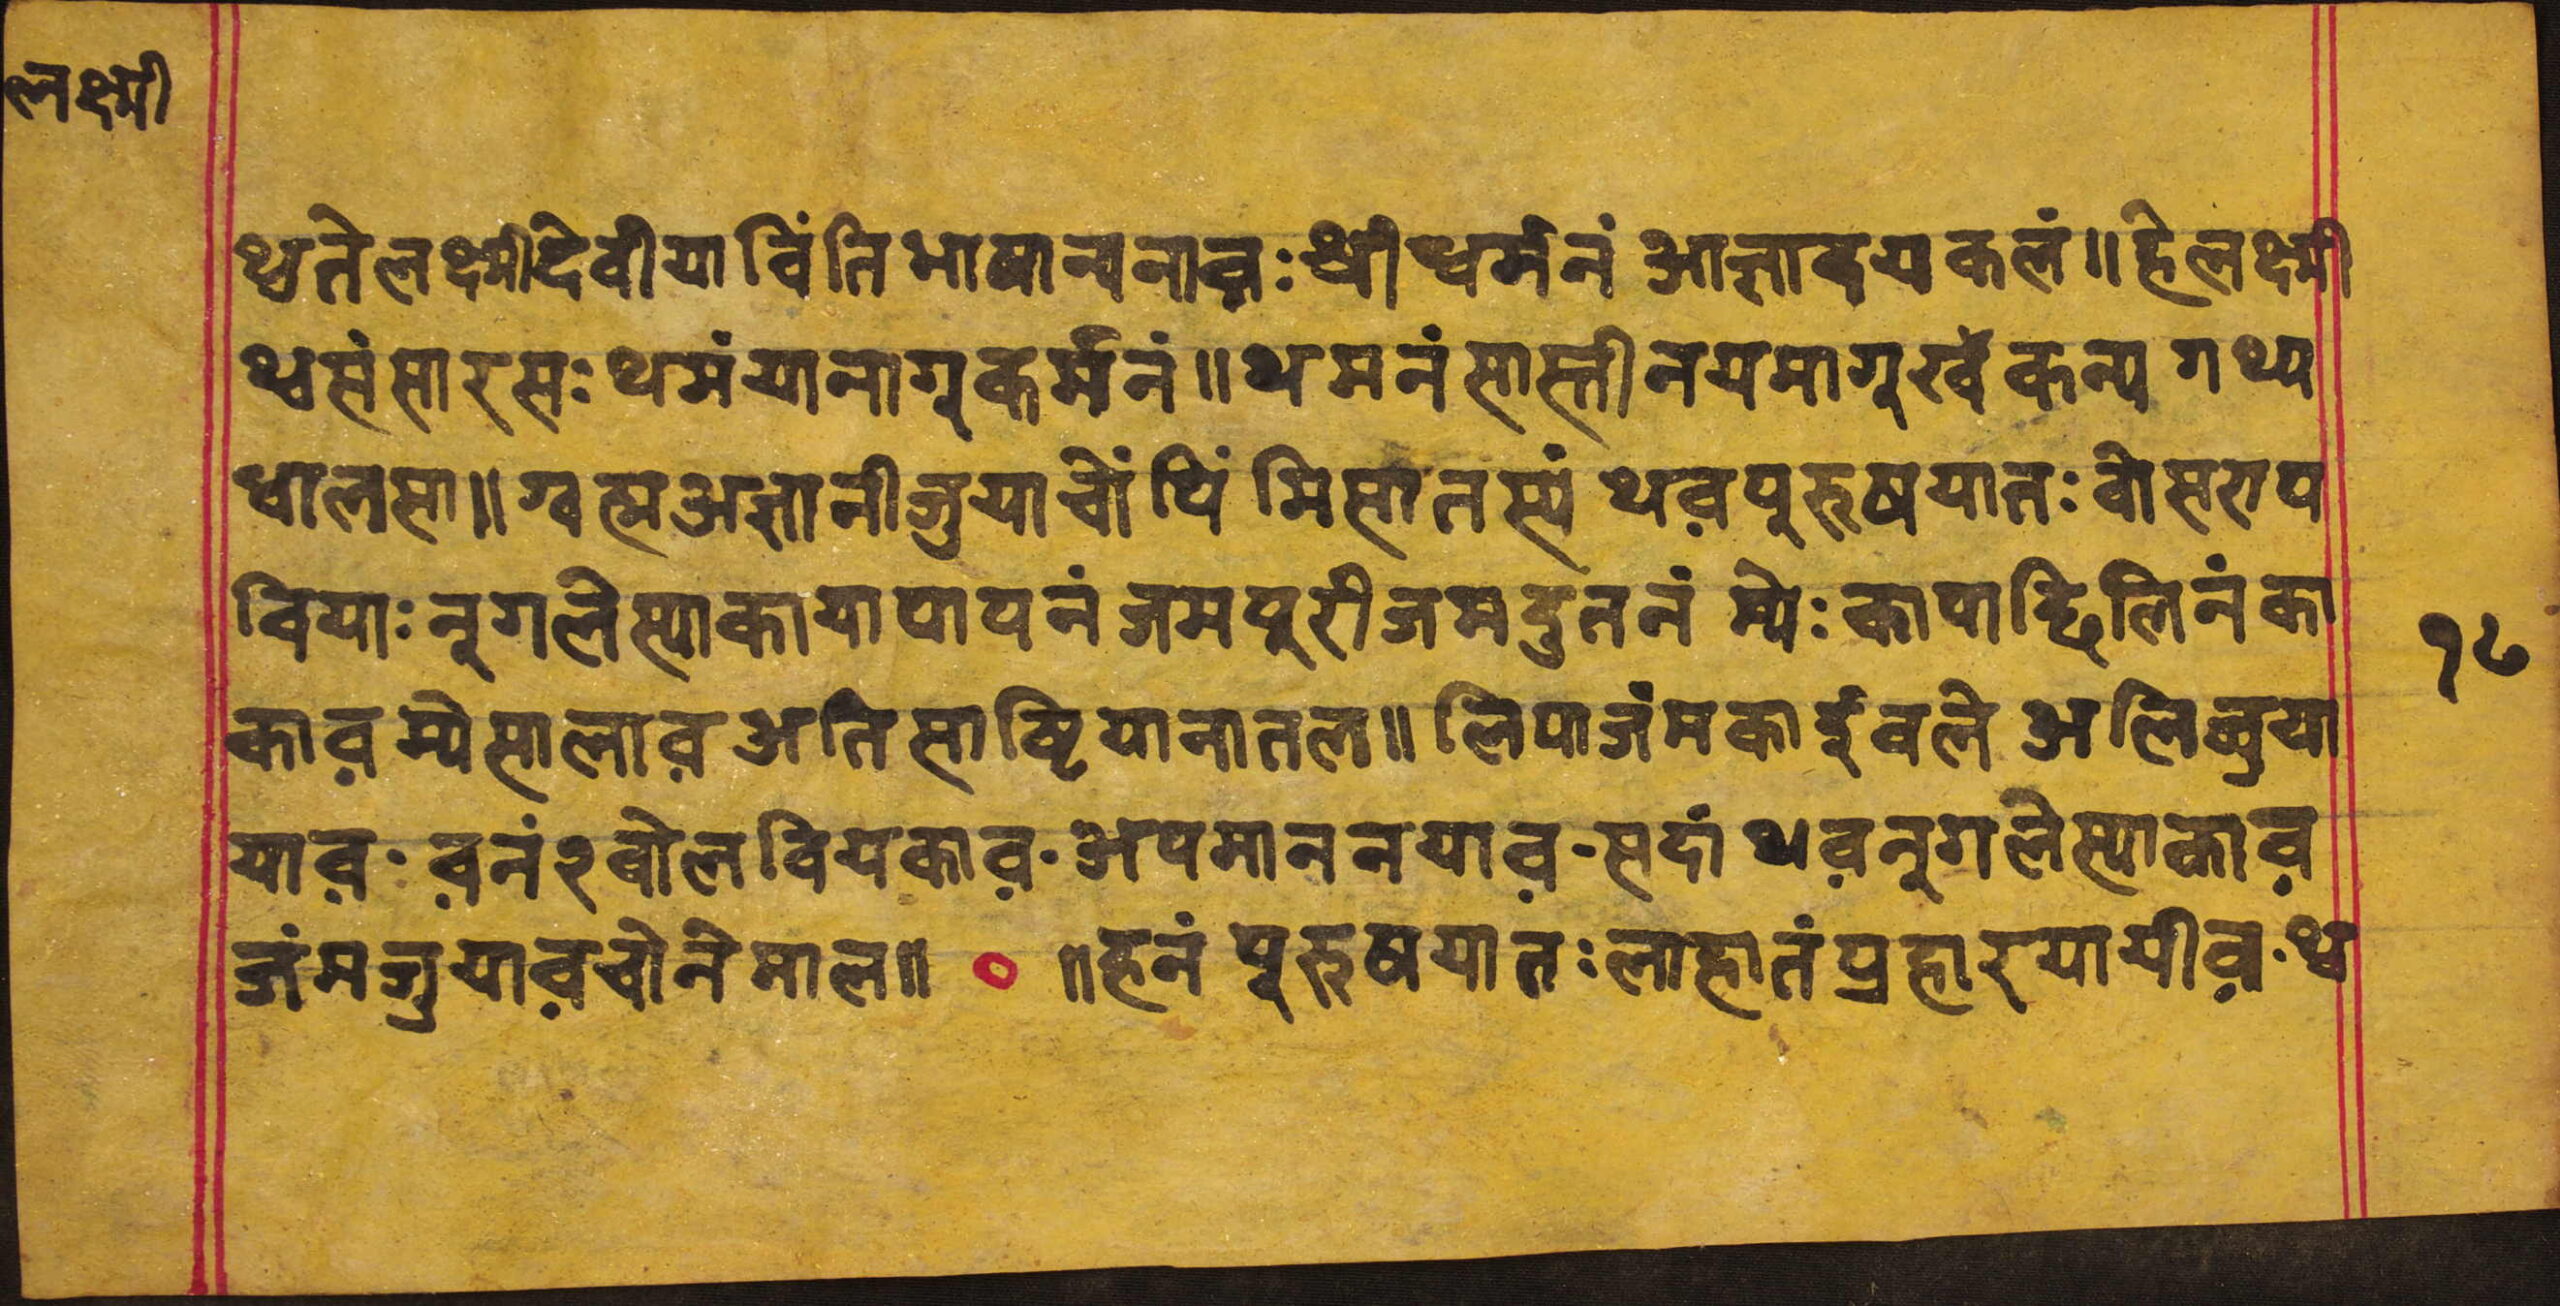 लक्ष्मी
थ्वते लक्ष्मीदेवीया विंति भाषान्यनाव़ः श्रीधर्मनं आज्ञादयकलं॥ हे लक्ष्मी
थ्वसंसारसः थमंयानागू कर्मनं॥ थमनं सास्ती नयमागूखँ कन्य गथ्य
धालसा॥ ग्वह्म अज्ञानी जुयाचोंपिं मिसातस्यं थव़पूरुषयातः वोसराप
वियाः नूगलेस्याकाया पापनं जमपूरी जमदुतनं म्येः कापाछिलिनं का
काव़ म्येसालाव़ अति साष्टियानातल॥ लिपाजंमकाईवले अलिछुया
याव़ · व़नं२ वोलवियकाव़ · अपमाननयाव़ - सदां थव़नूगलेस्याकाव़
जंमजुयाव़चोनेमाल॥ ० ॥ हनं पूरुषयातः लाहातं प्रहारयायीव़ · थ्व
१८